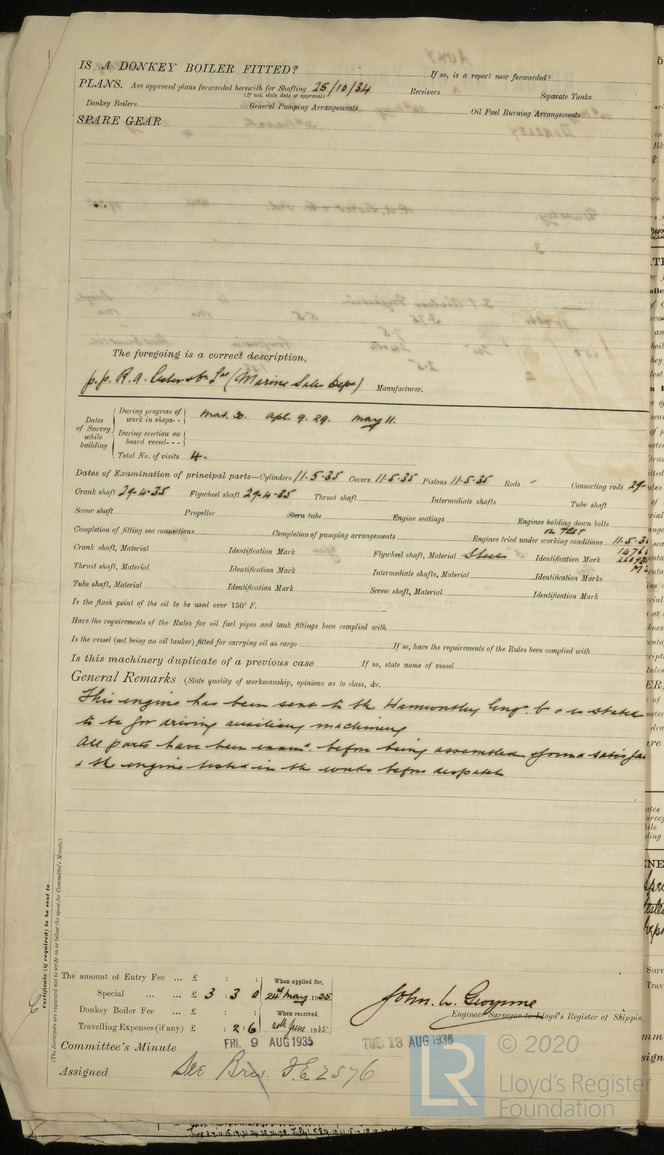 IS A DONKEY BOILER FITTED? If so, is a report now forwarded?
PLANS. Are approved plans forwarded herewith for Shafting 25/10/34 Receivers Separate Tanks
(If not, state date of approval)
Donkey Boilers General Pumping Arrangements Oil Fuel Burning Arrangements
SPARE GEAR
The foregoing is a correct description,
p.p. R.A. Lister & Co Ltd (Marine Sales Dept) Manufacturer.
Dates of Survey while building
During progress of work in shops-- Mar. 20. Apl. 9. 29. May 11.
During erection on board vessel---
Total No. of visits 4.
Dates of Examination of principal parts—Cylinders 11-5-35 Covers 11-5-35 Pistons 11-5-35 Rods - Connecting rods 29-
Crank shaft 29-4-35 Flywheel shaft 29-4-35 Thrust shaft Intermediate shafts Tube shaft
Screw shaft Propeller Stern tube Engine seatings Engines holding down bolts
Completion of fitting sea connections Completion of pumping arrangements Engines tried under working conditions on TEST 11-5-3
Crank shaft, Material Identification Mark Flywheel shaft, Material Steel Identification Mark
Thrust shaft, Material Identification Mark Intermediate shafts, Material Identification Marks
Tube shaft, Material Identification Mark Screw shaft, Material Identification Mark
Is the flash point of the oil to be used over 150° F.
Have the requirements of the Rules for oil fuel pipes and tank fittings been complied with
Is the vessel (not being an oil tanker) fitted for carrying oil as cargo If so, have the requirements of the Rules been complied with
Is this machinery duplicate of a previous case If so, state name of vessel
General Remarks (State quality of workmanship, opinions as to class, &c.
This engine has been sent to the Hamworthy Engr. Co & is stated
to be for driving auxiliary machinery
All parts have been examd. before being assembled & found satisfac
& the engine tested in the works before despatch
Certificate (if required) to be sent to
(The Surveyors are requested not to write on or below the space for Committee's Minute.)
The amount of Entry Fee ... £ : : When applied for,
Special ... ... £ 3 : 3 : 0 24th May 1935
Donkey Boiler Fee ... £ : : When received,
Travelling Expenses (if any) £ : 2 : 6 20th June 1935
John W. Gwynne
Engineer Surveyor to Lloyd's Register of Shippin
Committee's Minute FRI. 9 AUG 1935 TUE 13 AUG 1935
Assigned See Bris. F.E. 2576
© 2020
LR
Lloyd's Register
Foundation